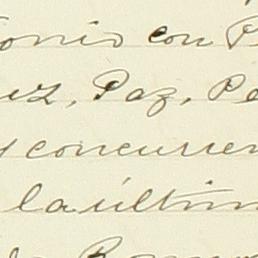 onio con P
ez, Paz, Pe
y concurren
la últim